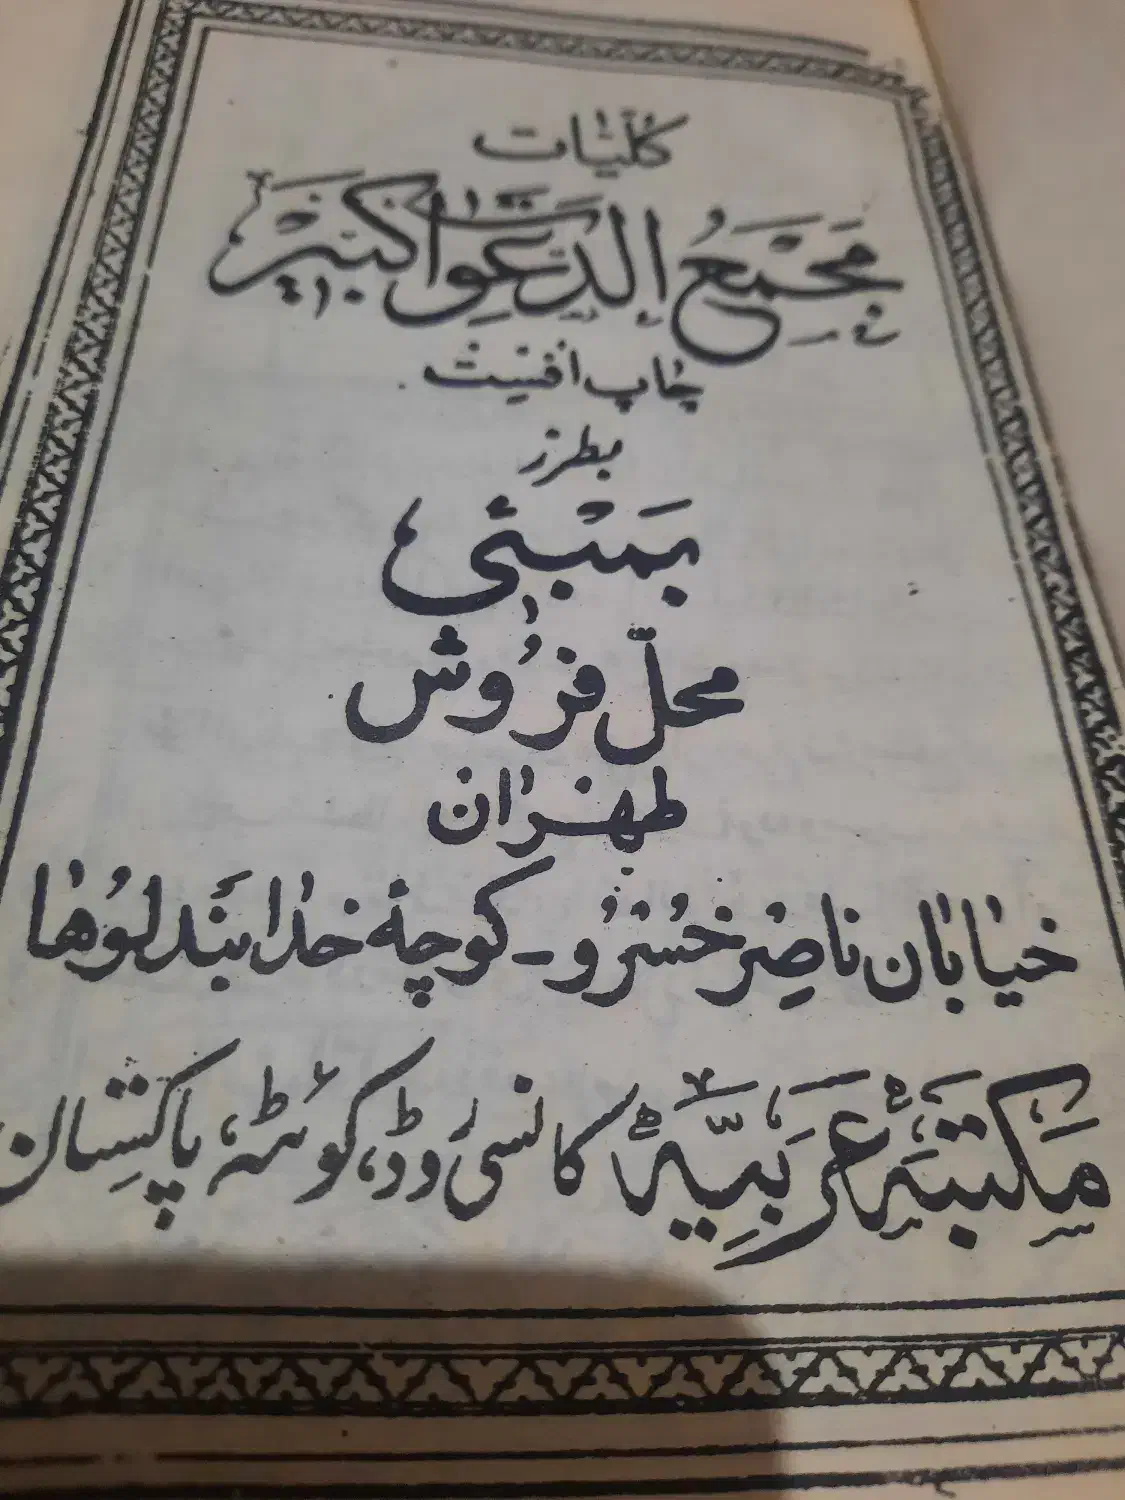 کلیات
مجمع الدعوات کبیر
چاپ افست
بطرز
بمبئی
محلّ فروش
طهران
خیابان ناصر خسرو - کوچه خدابندلوها
مکتبۂ عربیّہ کانسی روڈ، کوئٹہ، پاکستان